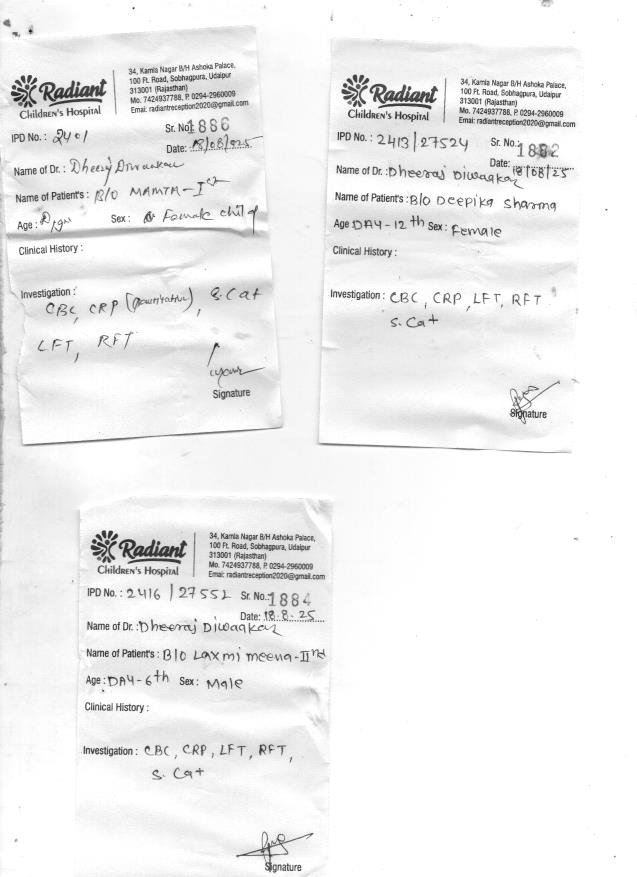 Radiant
Children's Hospital
34, Kamla Nagar B/H Ashoka Palace,
100 Ft. Road, Sobhagpura, Udaipur
313001 (Rajasthan)
Mo. 7424937788, P. 0294-2960009
Emai: radiantreception2020@gmail.com
IPD No. : 2401 Sr. No.: 1886
Date: 18/08/025
Name of Dr. : Dheeraj Diwaakar
Name of Patient's : B/O MAMTA-Ist
Age : Sex : Female child
Clinical History :
Investigation :
CBC, CRP (Quantitative), S. Cat
LFT, RFT
Signature
Radiant
Children's Hospital
34, Kamla Nagar B/H Ashoka Palace,
100 Ft. Road, Sobhagpura, Udaipur
313001 (Rajasthan)
Mo. 7424937788, P. 0294-2960009
Emai: radiantreception2020@gmail.com
IPD No. : 2413/27524 Sr. No.: 1882
Date: 18/08/25
Name of Dr. : Dheeraj Diwaakar
Name of Patient's : B/O Deepika Sharma
Age DAY-12th Sex : Female
Clinical History :
Investigation : CBC, CRP, LFT, RFT
S. Ca+
Signature
Radiant
Children's Hospital
34, Kamla Nagar B/H Ashoka Palace,
100 Ft. Road, Sobhagpura, Udaipur
313001 (Rajasthan)
Mo. 7424937788, P. 0294-2960009
Emai: radiantreception2020@gmail.com
IPD No. : 2416/27552 Sr. No.: 1884
Date: 18.8.25
Name of Dr. : Dheeraj Diwaakar
Name of Patient's : B/O Laxmi meena-IInd
Age : DAY-6th Sex : Male
Clinical History :
Investigation : CBC, CRP, LFT, RFT,
S. Ca+
Signature